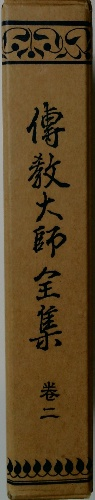 傳教大師全集
卷二